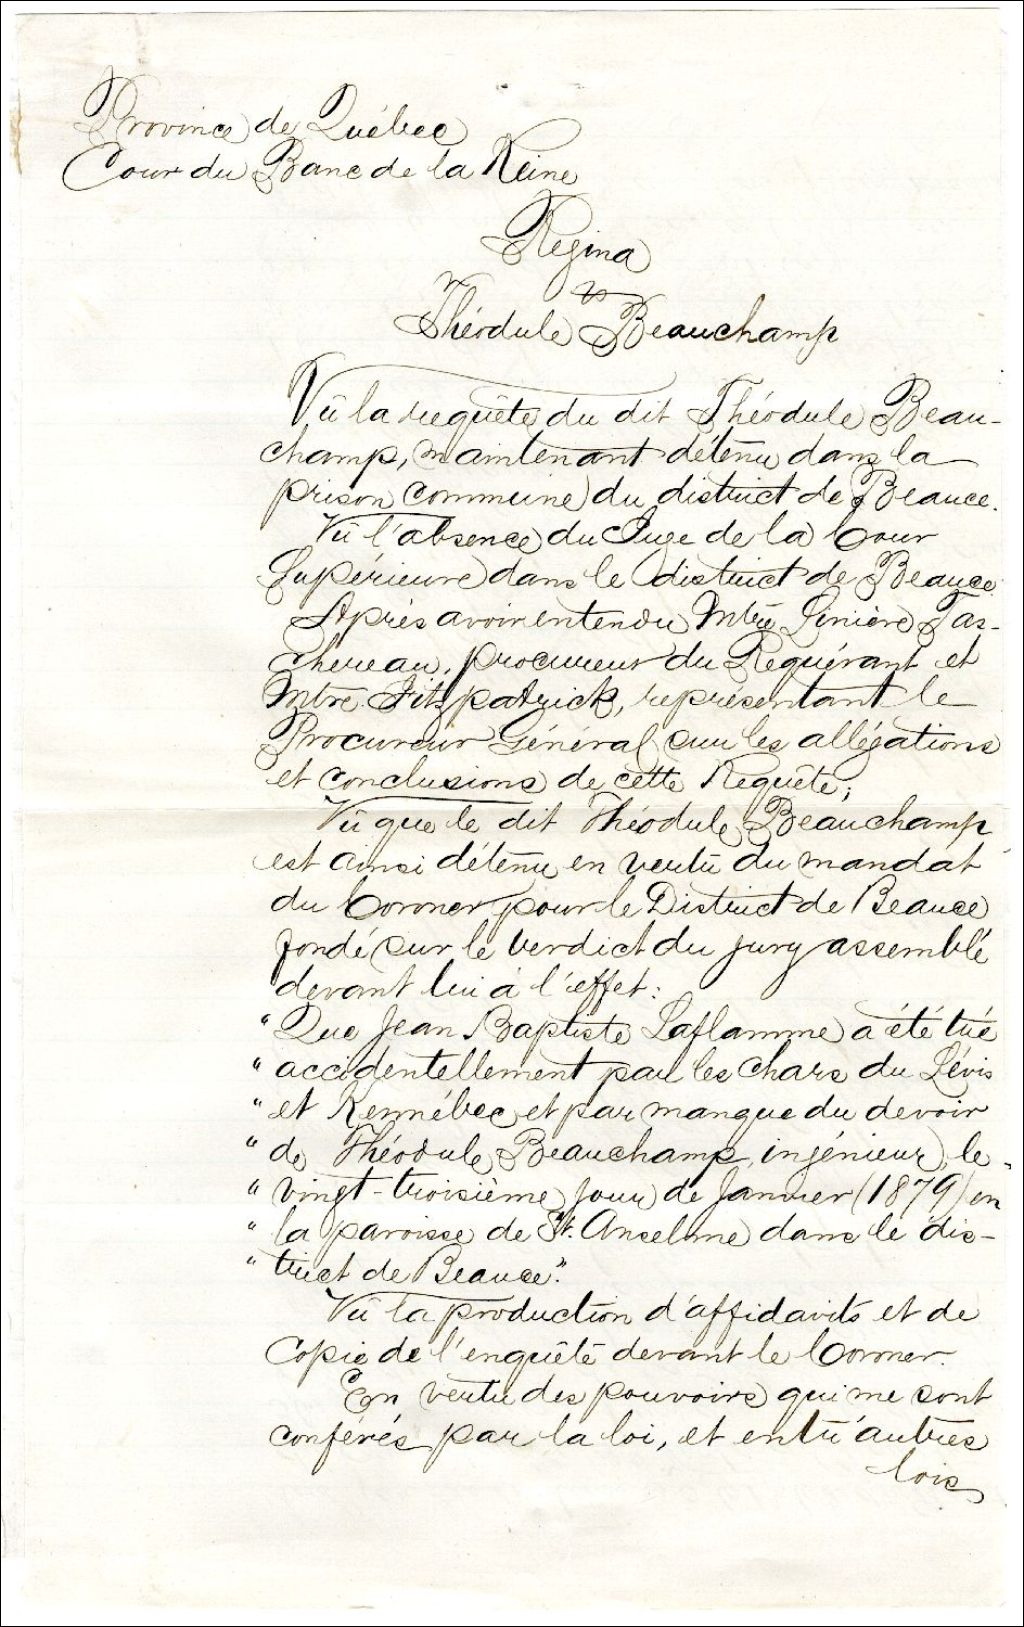 Province de Québec
Cour du Banc de la Reine
Regina
vs
Théodule Beauchamp
Vû la requête du dit Théodule Beau-
champ, maintenant détenu dans la
prison commune du district de Beauce.
Vû l'absence du Juge de la Cour
Supérieure dans le district de Beauce
Après avoir entendu Mtre Linière Tas-
chereau, procureur du Requérant et
Mtre Fitzpatrick, représentant le
Procureur Général sur les allégations
et conclusions de cette Requête;
Vû que le dit Théodule Beauchamp
est ainsi détenu en vertu du mandat
du Coroner pour le District de Beauce
fondé sur le verdict du jury assemblé
devant lui à l'effet:
"Que Jean Baptiste Laflamme a été tué
"accidentellement par les chars du Lévis
"et Kennébec et par manque du devoir
"de Théodule Beauchamp, ingénieur, le
"vingt-troisième jour de Janvier (1879) en
"la paroisse de St. Anselme dans le dis-
"trict de Beauce".
Vû la production d'affidavits et de
Copie de l'enquête devant le Coroner.
En vertu des pouvoirs qui me sont
conférés par la loi, et entr'autres
lois